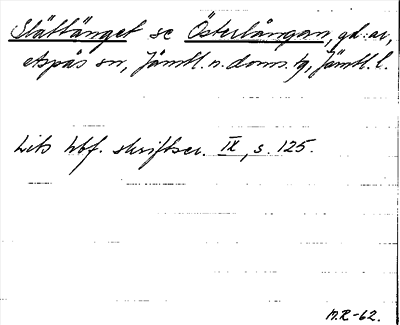 Slättänget se Österlången, gd:ar,
Aspås sn, Jämtl. n. doms. tg, Jämtl. l.
Lits hbf. skriftser. IX, s. 125.
M.R-62.